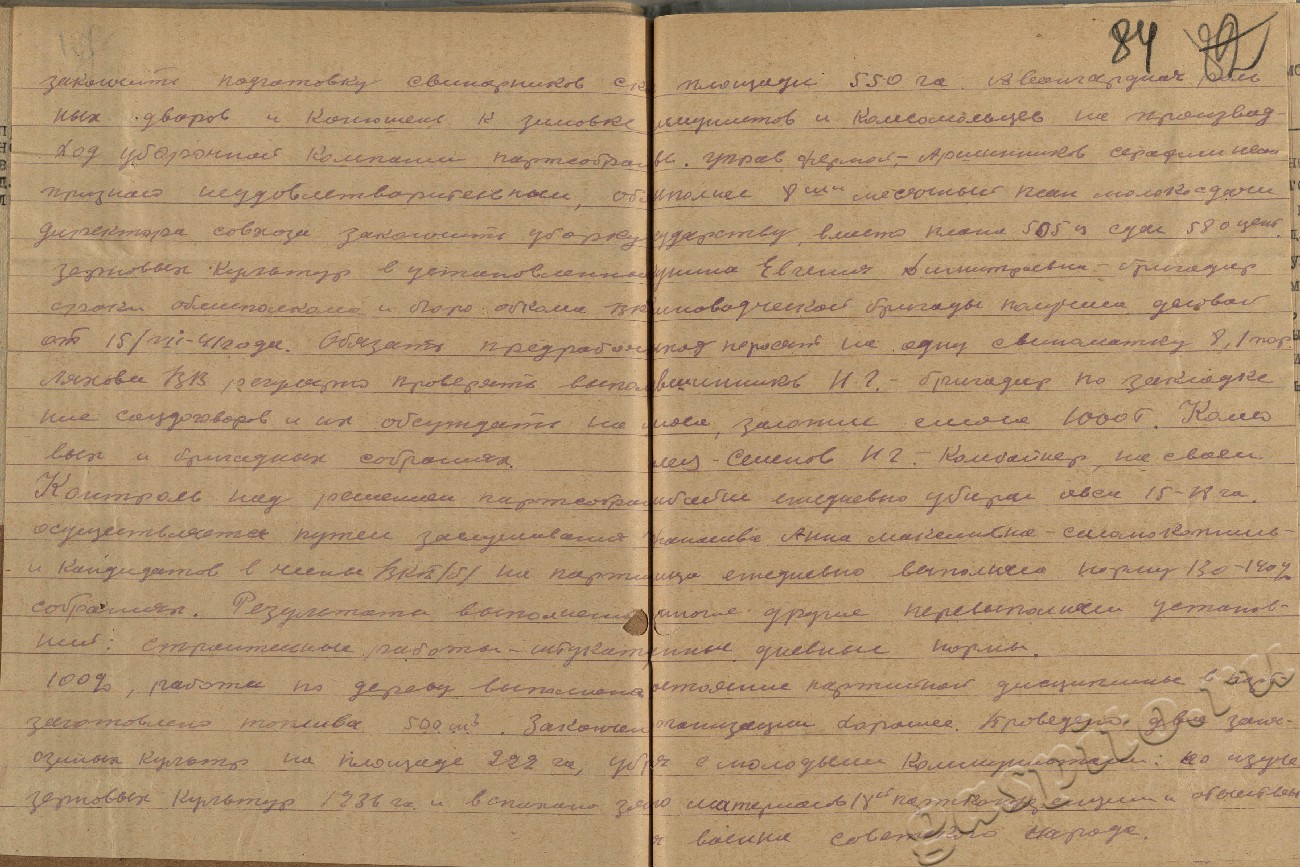 84
закончить подготовку свинарников ско
ных дворов и конюшень к зимовке
Ход уборочной компании партсобра
признало неудовлетварительным, обя
директора совхоза закончить уборку
зерновых культур в установленные
сроки облисполкома и бюро обкома ВК
от 15/VII-41 года. Обязать предрабоч
Ляхова ВВ регулярно проверять выпол
ние соцдоговоров и их обсуждать на
вых и бригадных собраниях.
Контроль над решением партсобра
осуществляется путем заслушивания
и кандидатов в члены ВКП/б/ на парт
собраниях. Результаты выполнен
ний: строительные работы - штукату
100%, работы по дереву выполнена
заготовлено топлива 500 м³. Закончен
озимых культур на площаде 222 га, убр
зерновых культур 1936 га и вспахано зя
площади 550 га. Авангардная роль
мунистов и комсомольцев на производ-
ве. Управ фермой - Аришинников Серафим
полнел 8 ми месячный план молокосдачи
ударству, вместо плана 505 ц сдал 580 цент.
Евгения Димитриевна - бригадир
новодческой бригады получила деловой
поросят на одну свиноматку 8,1 пор
И Г. - бригадир по закладке
лоса, заложил силоса 1000 т. Комсо
лец - Семенов И Г. - Комбайнер, на своем
комбайне ежедневно убирал овса 15-18 га.
Анна Максимовна - соломокопниль-
щица ежедневно выполняла норму 130-140%
многие другие перевыполняли установ-
ленные дневные нормы.
остояние партийной дисциплины в парт
организации хорошее. Проведено два заня-
я с молодыми коммунистами: по изуче
материалов 18ой партконференции и отечествен
я война советского народа.
gaspito.ru